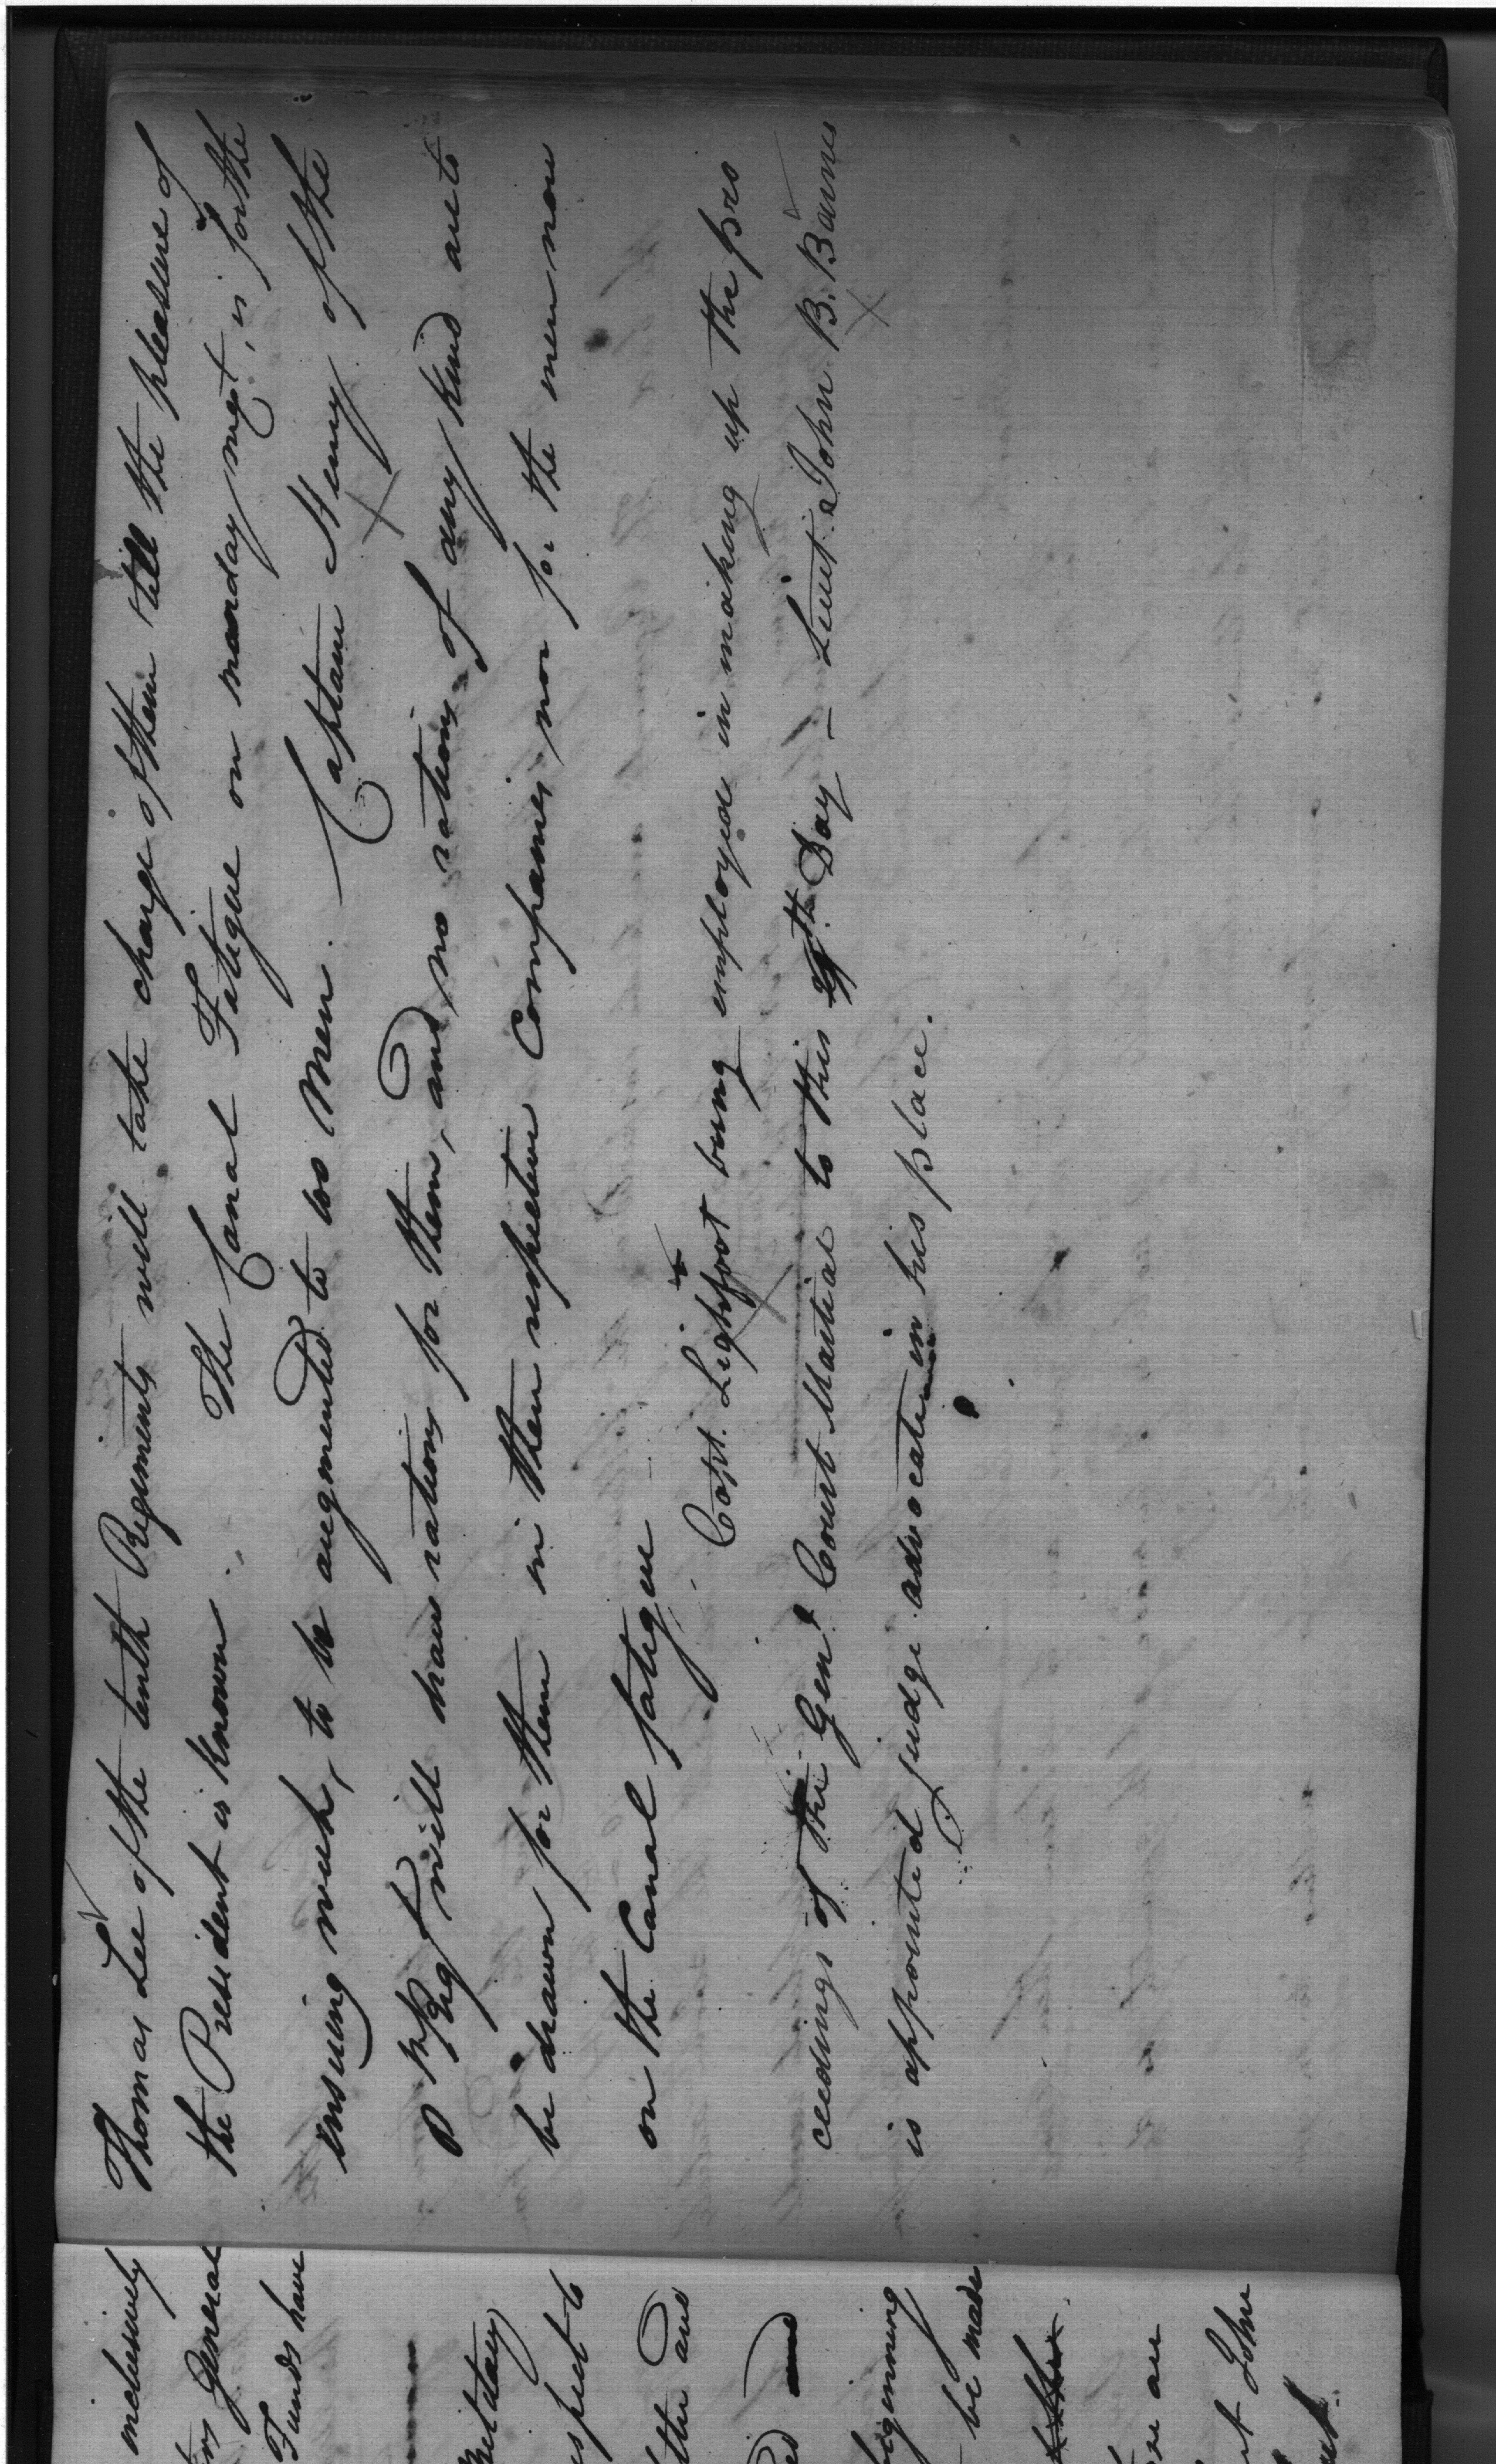 Thomas Lee of the tenth Regiments will take charge of them till the pleasure of
the President is known. The Canal Fatigue on monday next, is for the
ensuing week, to be augmented to 100 Men. Captain Henry of the
Regt will draw rations for them, and no rations of any kind are to
be drawn for them in their respective Companies nor for the men now
on the Canal fatigue
Capt. Lightfoot being employed in making up the pro
ceedings of the Genl Court Martial to this Day – Lieut John B. Barnes
is appointed judge advocate in his place.
inclusively
General
Funds have
Military
the and
and
beginning
be made
are
John